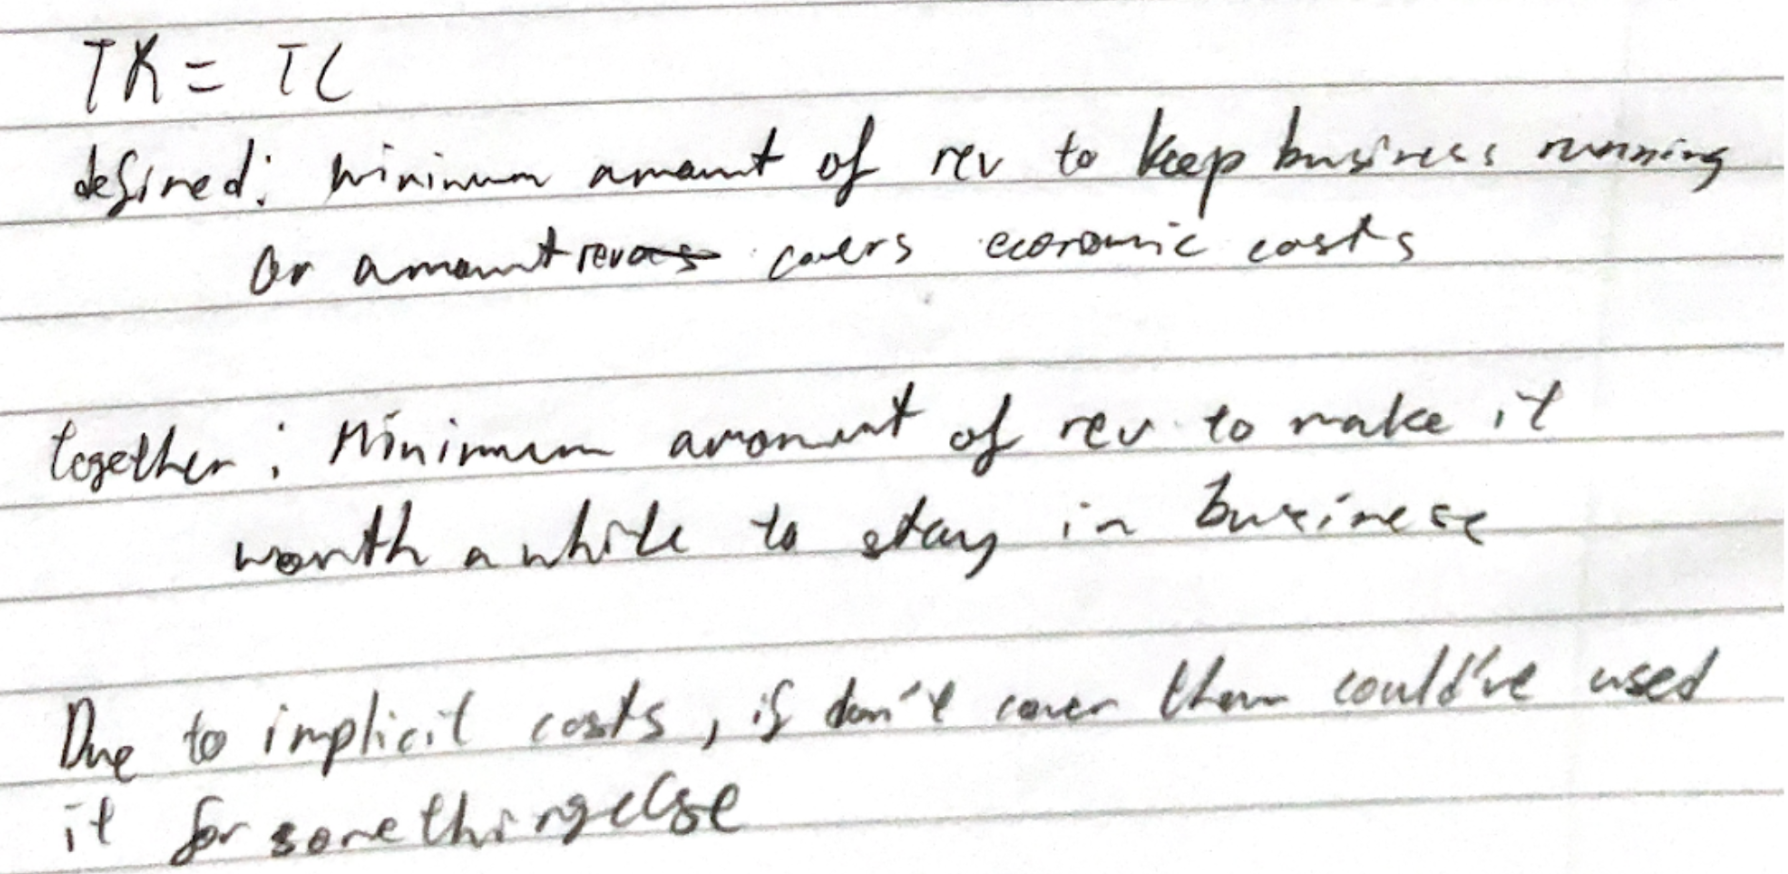 TR = TC
defined: minimum amount of rev to keep business running
or amount rev covers economic costs
together: Minimum amount of rev to make it
worth a while to stay in business
Due to implicit costs, if don't cover them could've used
it for something else